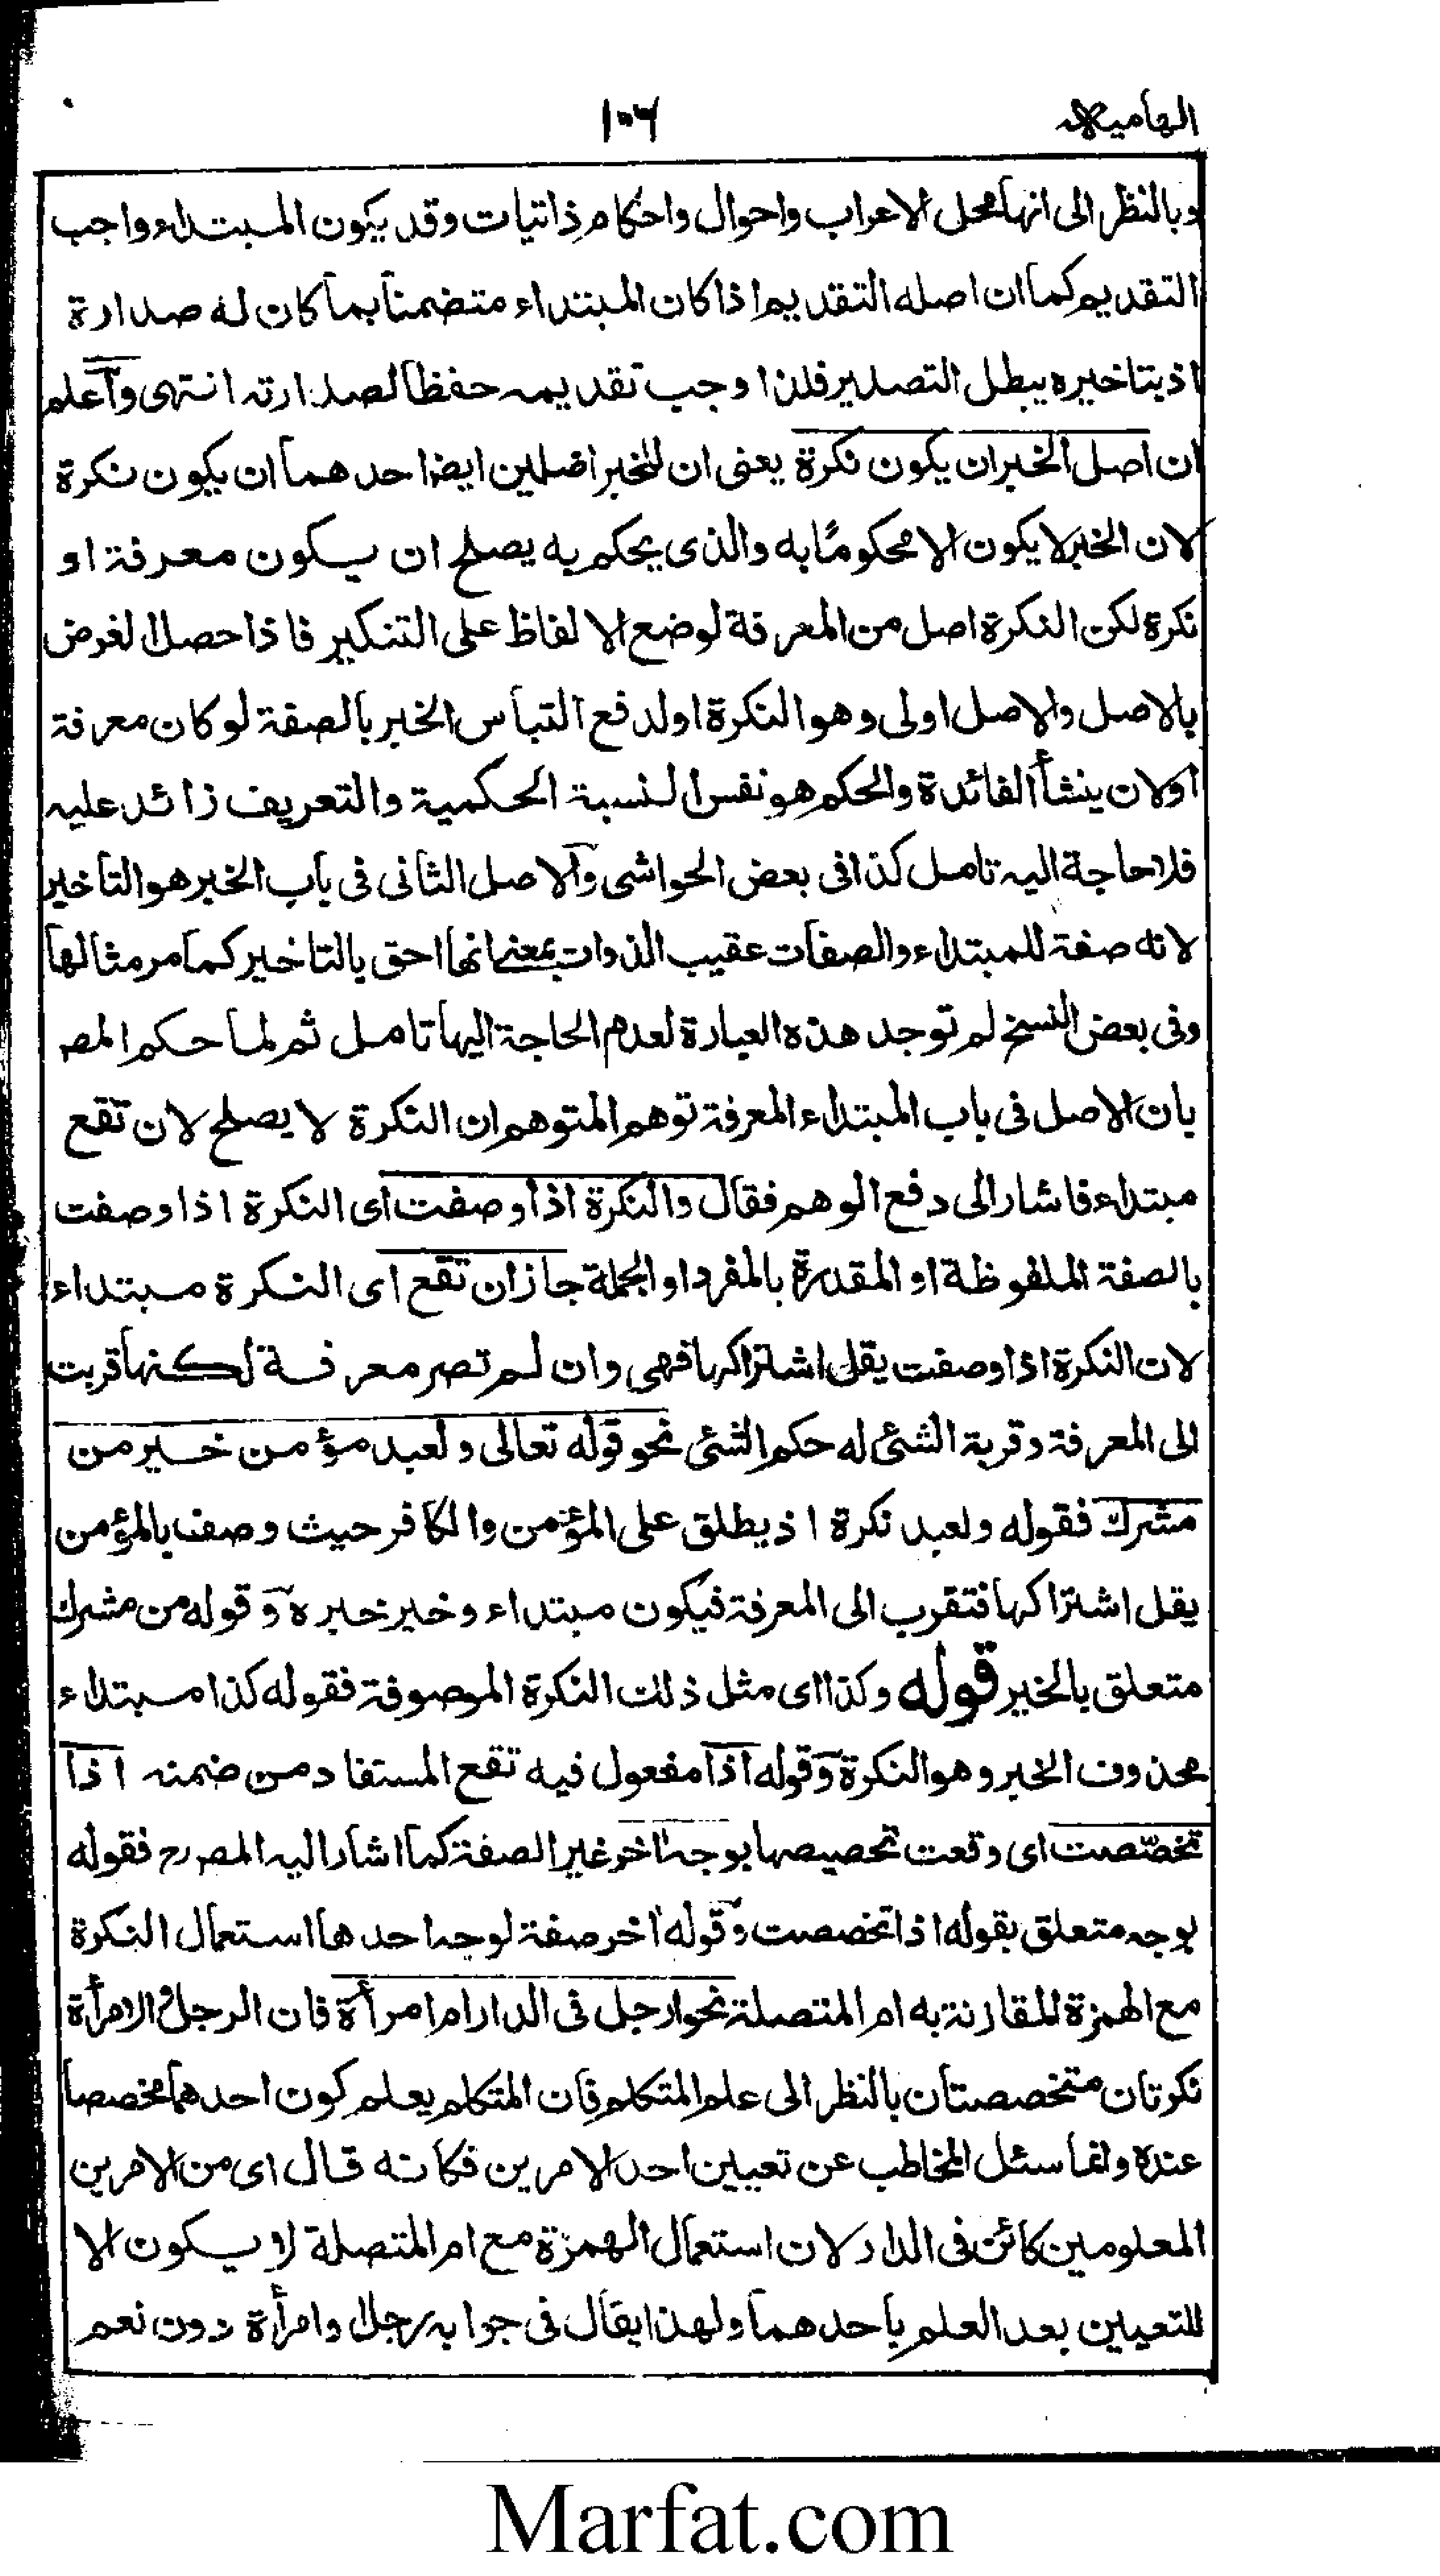 الهامية
١٠٦
وبالنظر الى انها محل الاعراب واحوال واحكام ذاتيات وقد يكون المبتداء واجب
التقديم كما ان اصله التقديم اذا كان المبتداء متضمنا بما كان له صدارة
اذ بتاخيره يبطل التصدير فلذا وجب تقديمه حفظا لصدارته انتهى وآعلم
ان اصل الخبر ان يكون نكرة يعنى ان للخبر اصلين ايضا احدهما ان يكون نكرة
لان الخبر لا يكون الا محكومًا به والذى يحكم به يصلح ان يكون معرفة او
نكرة لكن النكرة اصل من المعرفة لوضع الالفاظ على التنكير فاذا حصل الغرض
بالاصل والاصل اولى وهو النكرة اولدفع التباس الخبر بالصفة لو كان معرفة
اولان ينشأ الفائدة والحكم هو نفس النسبة الحكمية والتعريف زائد عليه
فلا حاجة اليه تامل كذا فى بعض الحواشى وآلاصل الثانى فى باب الخبر هو التاخير
لانه صفة للمبتداء والصفات عقيب الذوات بمعنى انها احق بالتاخير كما مر مثالها
وفى بعض النسخ لم توجد هذه العبارة لعدم الحاجة اليها تامل ثم لما حكم المصـ
بان الاصل فى باب المبتداء المعرفة توهم المتوهم ان النكرة لا يصلح لان تقع
مبتداء فاشار الى دفع الوهم فقال والنكرة اذا وصفت اى النكرة اذا وصفت
بالصفة الملفوظة او المقدرة بالمفرد او الجملة جاز ان تقع اى النكرة مبتداء
لان النكرة اذا وصفت يقل اشتراكها فهى وان لم تصر معرفة لكنها قربت
الى المعرفة وقربة الشئ له حكم الشئ نحو قوله تعالى ولعبد مؤمن خير من
مشرك فقوله ولعبد نكرة اذ يطلق على المؤمن والكافر حيث وصف بالمؤمن
يقل اشتراكها فتقرب الى المعرفة فيكون مبتداء وخير خبره وقوله من مشرك
متعلق بالخير قوله وكذا اى مثل ذلك النكرة الموصوفة فقوله كذا مبتداء
محذوف الخبر وهو النكرة وقوله اذا مفعول فيه تقع المستفاد من ضمنه اذا
تخصّصت اى وقعت تخصيصها بوجه اخر غير الصفة كما اشار اليه المصرح فقوله
بوجه متعلق بقوله اذا تخصصت وقوله اخر صفة لوجه احدها استعمال النكرة
مع الهمزة المقارنة به ام المتصلة نحو ارجل فى الدار ام امرأة فان الرجل والامرأة
نكرتان متخصصتان بالنظر الى علم المتكلم فان المتكلم يعلم كون احدهما مخصصا
عنده وانما سئل المخاطب عن تعيين احد الامرين فكانه قال اى من الامرين
المعلومين كائن فى الدار لان استعمال الهمزة مع ام المتصلة لا يكون الا
للتعيين بعد العلم باحدهما ولهذا يقال فى جوابه رجل او امرأة دون نعم
Marfat.com